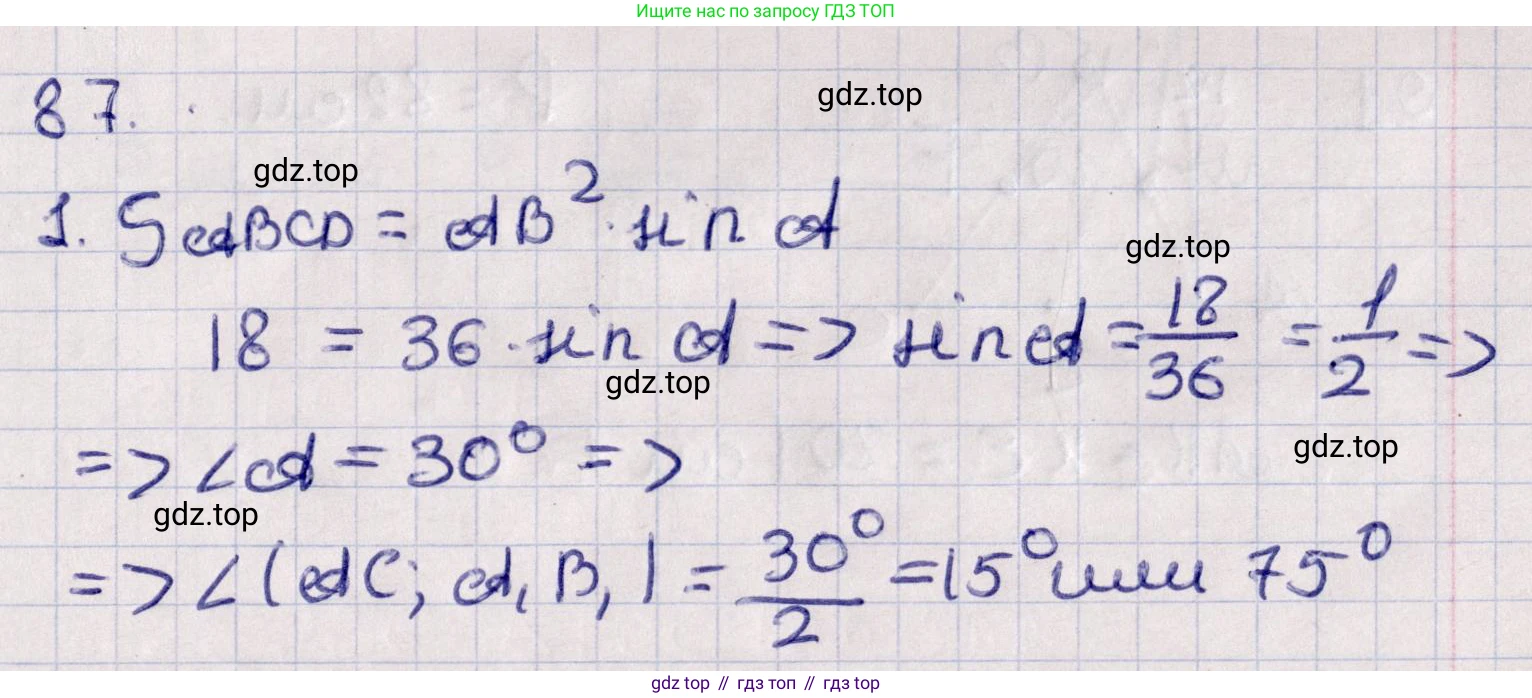 Ищите нас по запросу ГДЗ ТОП
87.
gdz.top
gdz.top
1. S ABCD = AB² · sin A
gdz.top
18 = 36 · sin A => sin A = 18/36 = 1/2 =>
gdz.top
=> ∠A = 30° =>
gdz.top
gdz.top
=> ∠(AC; A₁B₁) = 30°/2 = 15° или 75°
gdz top // гдз топ // гдз top